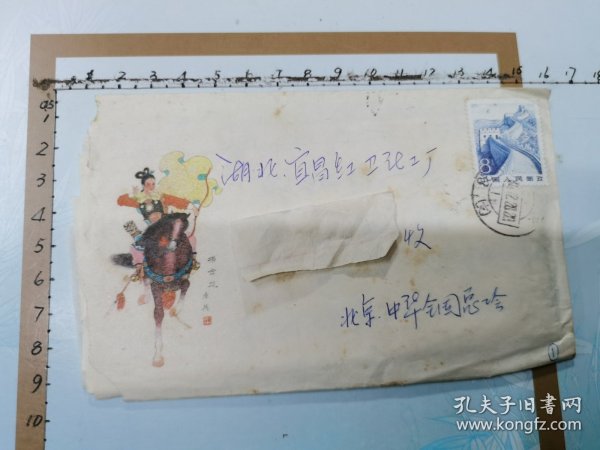 湖北.宜昌红卫化工厂
收
北京.中华全国总会
8
中国人民邮政
杨雪花
①
孔夫子旧书网
www.kongfz.com
05 1 2 3 4 5 6 7 8 9 10 11 12 13 14 15 16 17 18
1
2
3
4
5
6
7
8
9
10